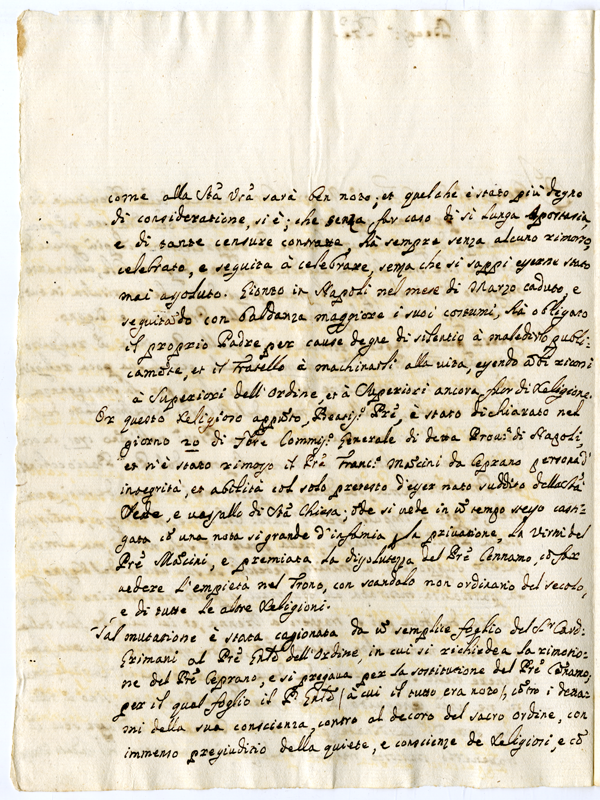 come alla Stà Vrã sarà ben noto; et quel che è stato più degno
di consideratione, si è; che senza far caso di si lunga apostasia,
e di tante censure contratte, hà sempre senza alcuno rimorso,
celebrato, e seguita à celebrare, senza che si sappi esserne stato
mai assoluto. Gionto in Napoli nel mese di Marzo caduto, e
seguitãdo con baldanza maggiore i suoi costumi, hà obligato
il proprio Padre per cause degne di silentio à maledirlo publi-
camẽte, et il fratello à machinarli alla vita, essendo
à Superiori dell'Ordine, et à Superiori ancora fuor di Religione.
Or questo Religioso appũto, Beatis: Prẽ, è stato dichiarato nel
giorno 20 di Commis: Generale di detta Prou: di Napoli,
et n'è stato rimosso il Prẽ Franc: Mascini da Ceprano persona d'
integrità, et abilità col solo pretesto d'esser nato suddito della Stà
Sede, e vassallo di Stà Chiesa; õde si vede in ũ tempo stesso casti-
gata cõ una nota si grande d'infamia, la privatione, la virtù del
Prẽ Mascini, e premiata la dissolutezza del Prẽ Cennamo, cõ far
vedere l'empietà nel Trono, con scandalo non ordinario del secolo,
e di tutte le altre Religioni.
Tal mutatione è stata cagionata da ũ semplice foglio del Sr Card:
Grimani al Prẽ Gnlẽ dell'Ordine, in cui si richiedea la rimotio-
ne del Prẽ Ceprano, e si pregava per la sostitutione del Prẽ Cẽnamo;
per il qual foglio il P. Gnlẽ (à cui il tutto era noto), cõtro i detta-
mi della sua conscienza, contro al decoro del sacro ordine, con
immenso pregiuditio della quiete, e conscienze de Religiosi, e cõ